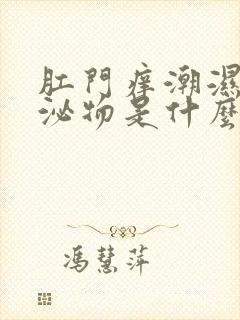 肛門痒潮濕
泌物是什麼
馮慧萍